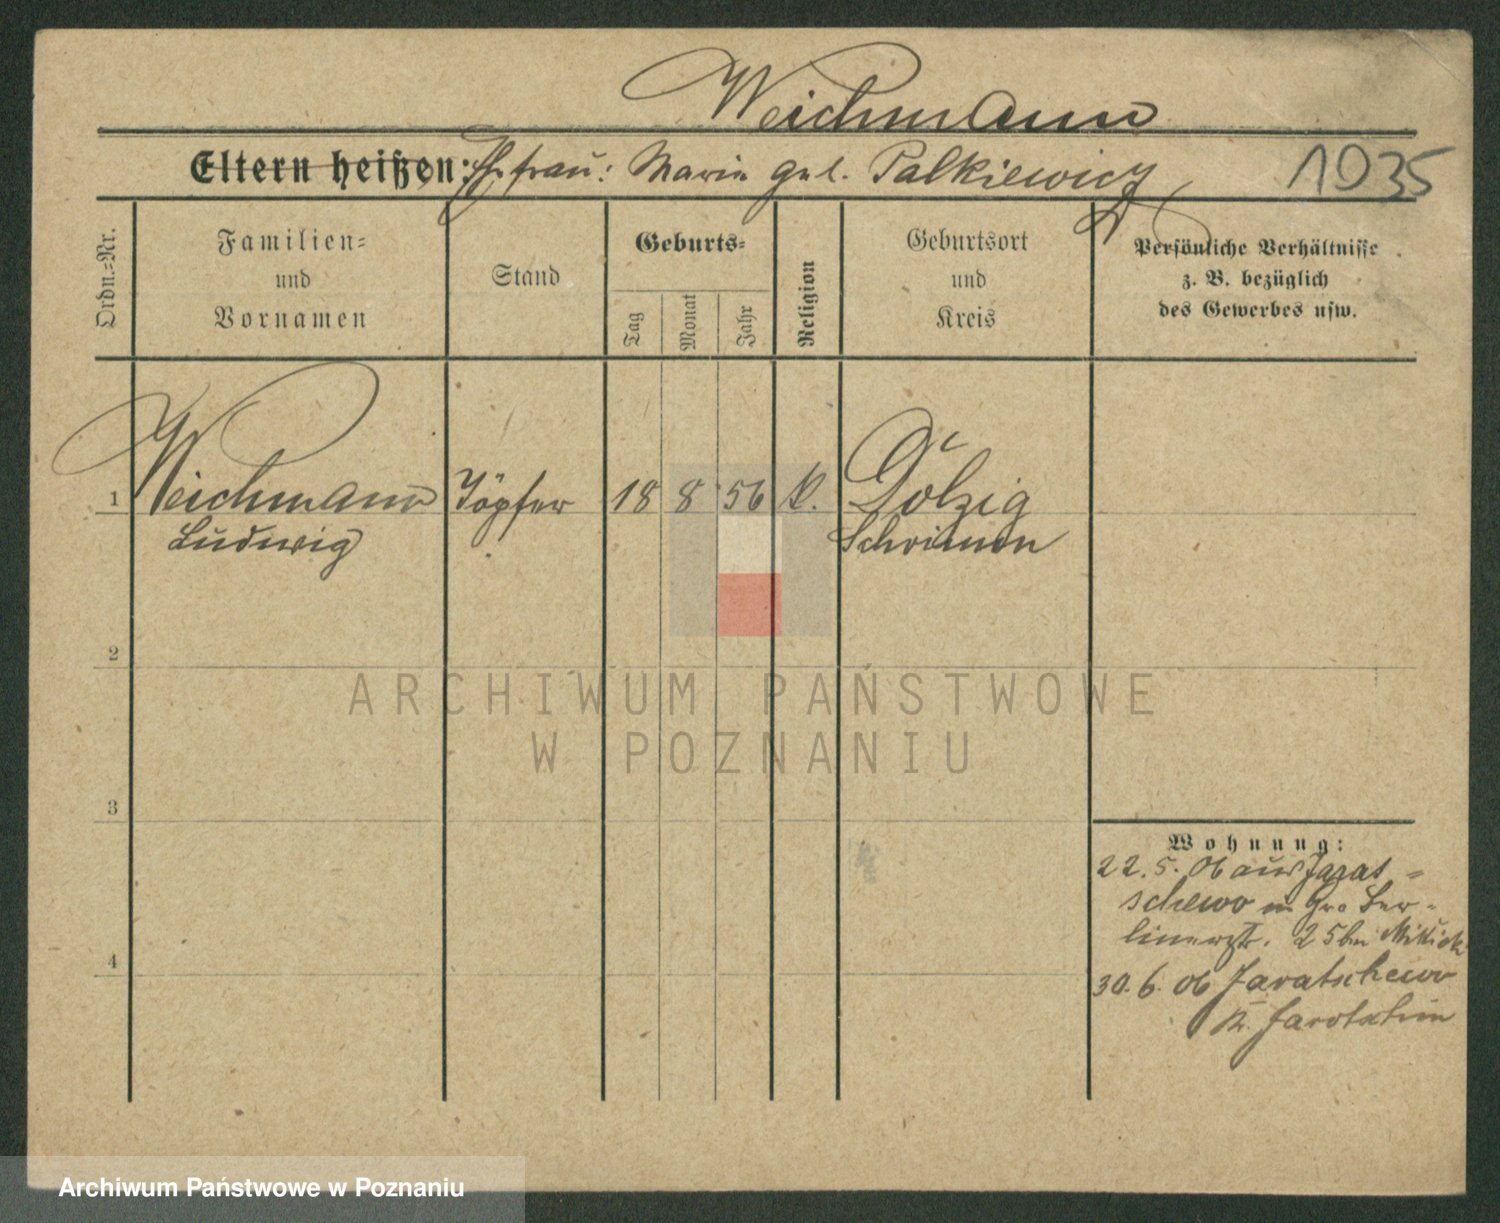 Weichmann
Eltern heißen: Ehefrau: Marie geb. Palkiewicz
1035
Ordn.-Nr.
Familien-
und
Vornamen
Stand
Geburts-
Tag
Monat
Jahr
Religion
Geburtsort
und
Kreis
Persönliche Verhältnisse
z. B. bezüglich
des Gewerbes usw.
1 Weichmann Töpfer 18 8 56 k. Dolzig
Ludwig Schrimm
2
ARCHIWUM PAŃSTWOWE
W POZNANIU
3
Wohnung:
22.5.06 aus Jarat-
schewo n Gro Ber-
linerstr. 25 bei
4
30.6.06 Jaratschewo
Kr. Jarotschin
Archiwum Państwowe w Poznaniu